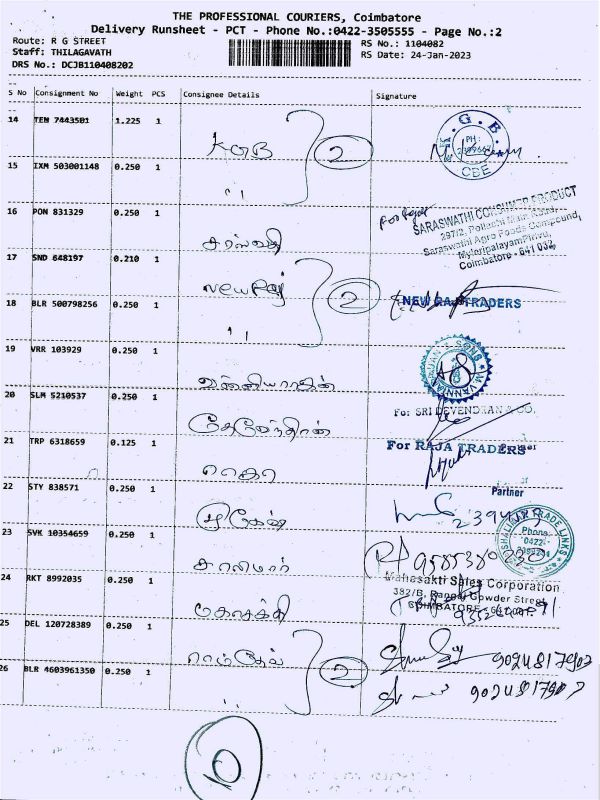 THE PROFESSIONAL COURIERS, Coimbatore
Delivery Runsheet - PCT - Phone No.:0422-3505555 - Page No.:2
Route: R G STREET
Staff: THILAGAVATH
DRS No.: DCJB110408202
RS No.: 1104082
RS Date: 24-Jan-2023
S No Consignment No Weight PCS Consignee Details Signature
14 TEN 7443501 1.225 1 KGB 2
K.G.B. PH: CBE
15 IXM 503001148 0.250 1 "
16 PON 831329 0.250 1 சரஸ்வதி
SARASWATHI CONSUMER PRODUCT
297/2, Pollachi Main Road,
Saraswathi Agro Foods Compound,
MyleripalayamPirivu,
Coimbatore - 641 032.
17 SND 648197 0.210 1 New Raj 2
18 BLR 500798256 0.250 1 "
NEW RAJ TRADERS
19 VRR 103929 0.250 1
20 SLM 5210537 0.250 1 தேவேந்திரன்
Fo: SRI DEVENDRAN & CO.
21 TRP 6318659 0.125 1 ராஜா
For RAJA TRADERS
Partner
22 STY 838571 0.250 1
23 SVK 10354659 0.250 1 சாலிமார்
SHALIMAR TRADE LINKS
Phone: 0422-
24 RKT 8992035 0.250 1 மகாசக்தி
Mahasakti Sales Corporation
382/B, Rangai Gowder Street,
COIMBATORE - 641 001
25 DEL 120728389 0.250 1 ராம்தேவ் 2 9024817902
26 BLR 4603961350 0.250 1 " 9024817902